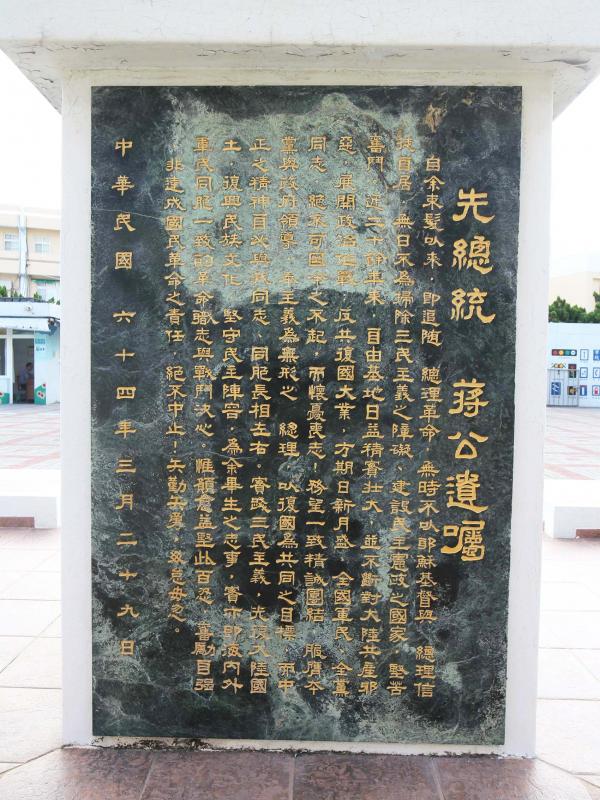 先總統 蔣公遺囑
自余束髮以來，即追隨 總理革命，無時不以耶穌基督與 總理信
徒自居，無日不為掃除三民主義之障礙，建設民主憲政之國家，堅苦
奮鬥。近二十餘年來，自由基地日益精實壯大，並不斷對大陸共產邪
惡，展開政治作戰；反共復國大業，方期日新月盛，全國軍民、全黨
同志，絕不可因余之不起，而懷憂喪志！務望一致精誠團結，服膺本
黨與政府領導，奉主義為無形之 總理，以復國為共同之目標，而中
正之精神自必與我同志、同胞長相左右。實踐三民主義，光復大陸國
土，復興民族文化，堅守民主陣容，為余畢生之志事，實亦即海內外
軍民同胞一致的革命職志與戰鬥決心。惟願愈益堅此百忍，奮勵自強
，非達成國民革命之責任，絕不中止！矢勤矢勇，毋怠毋忽。
中華民國 六十四年三月二十九日